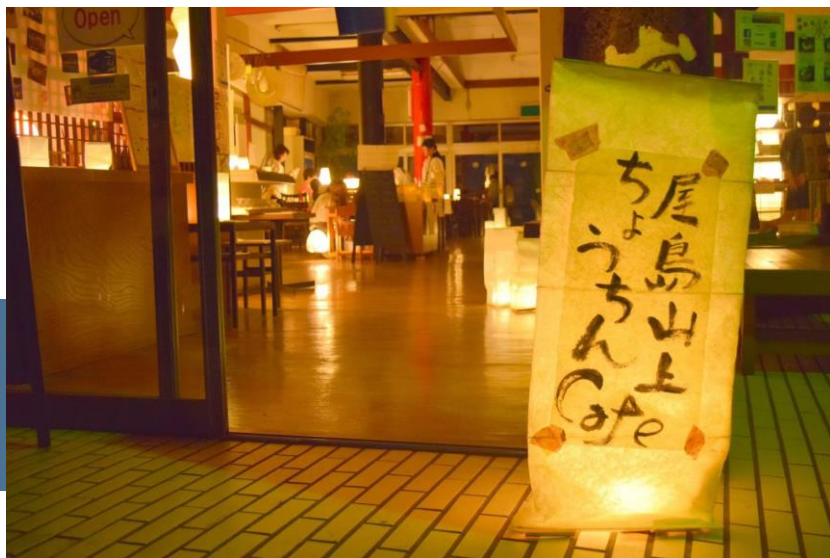 Open
尾島山上
ちょうちん
Cafe